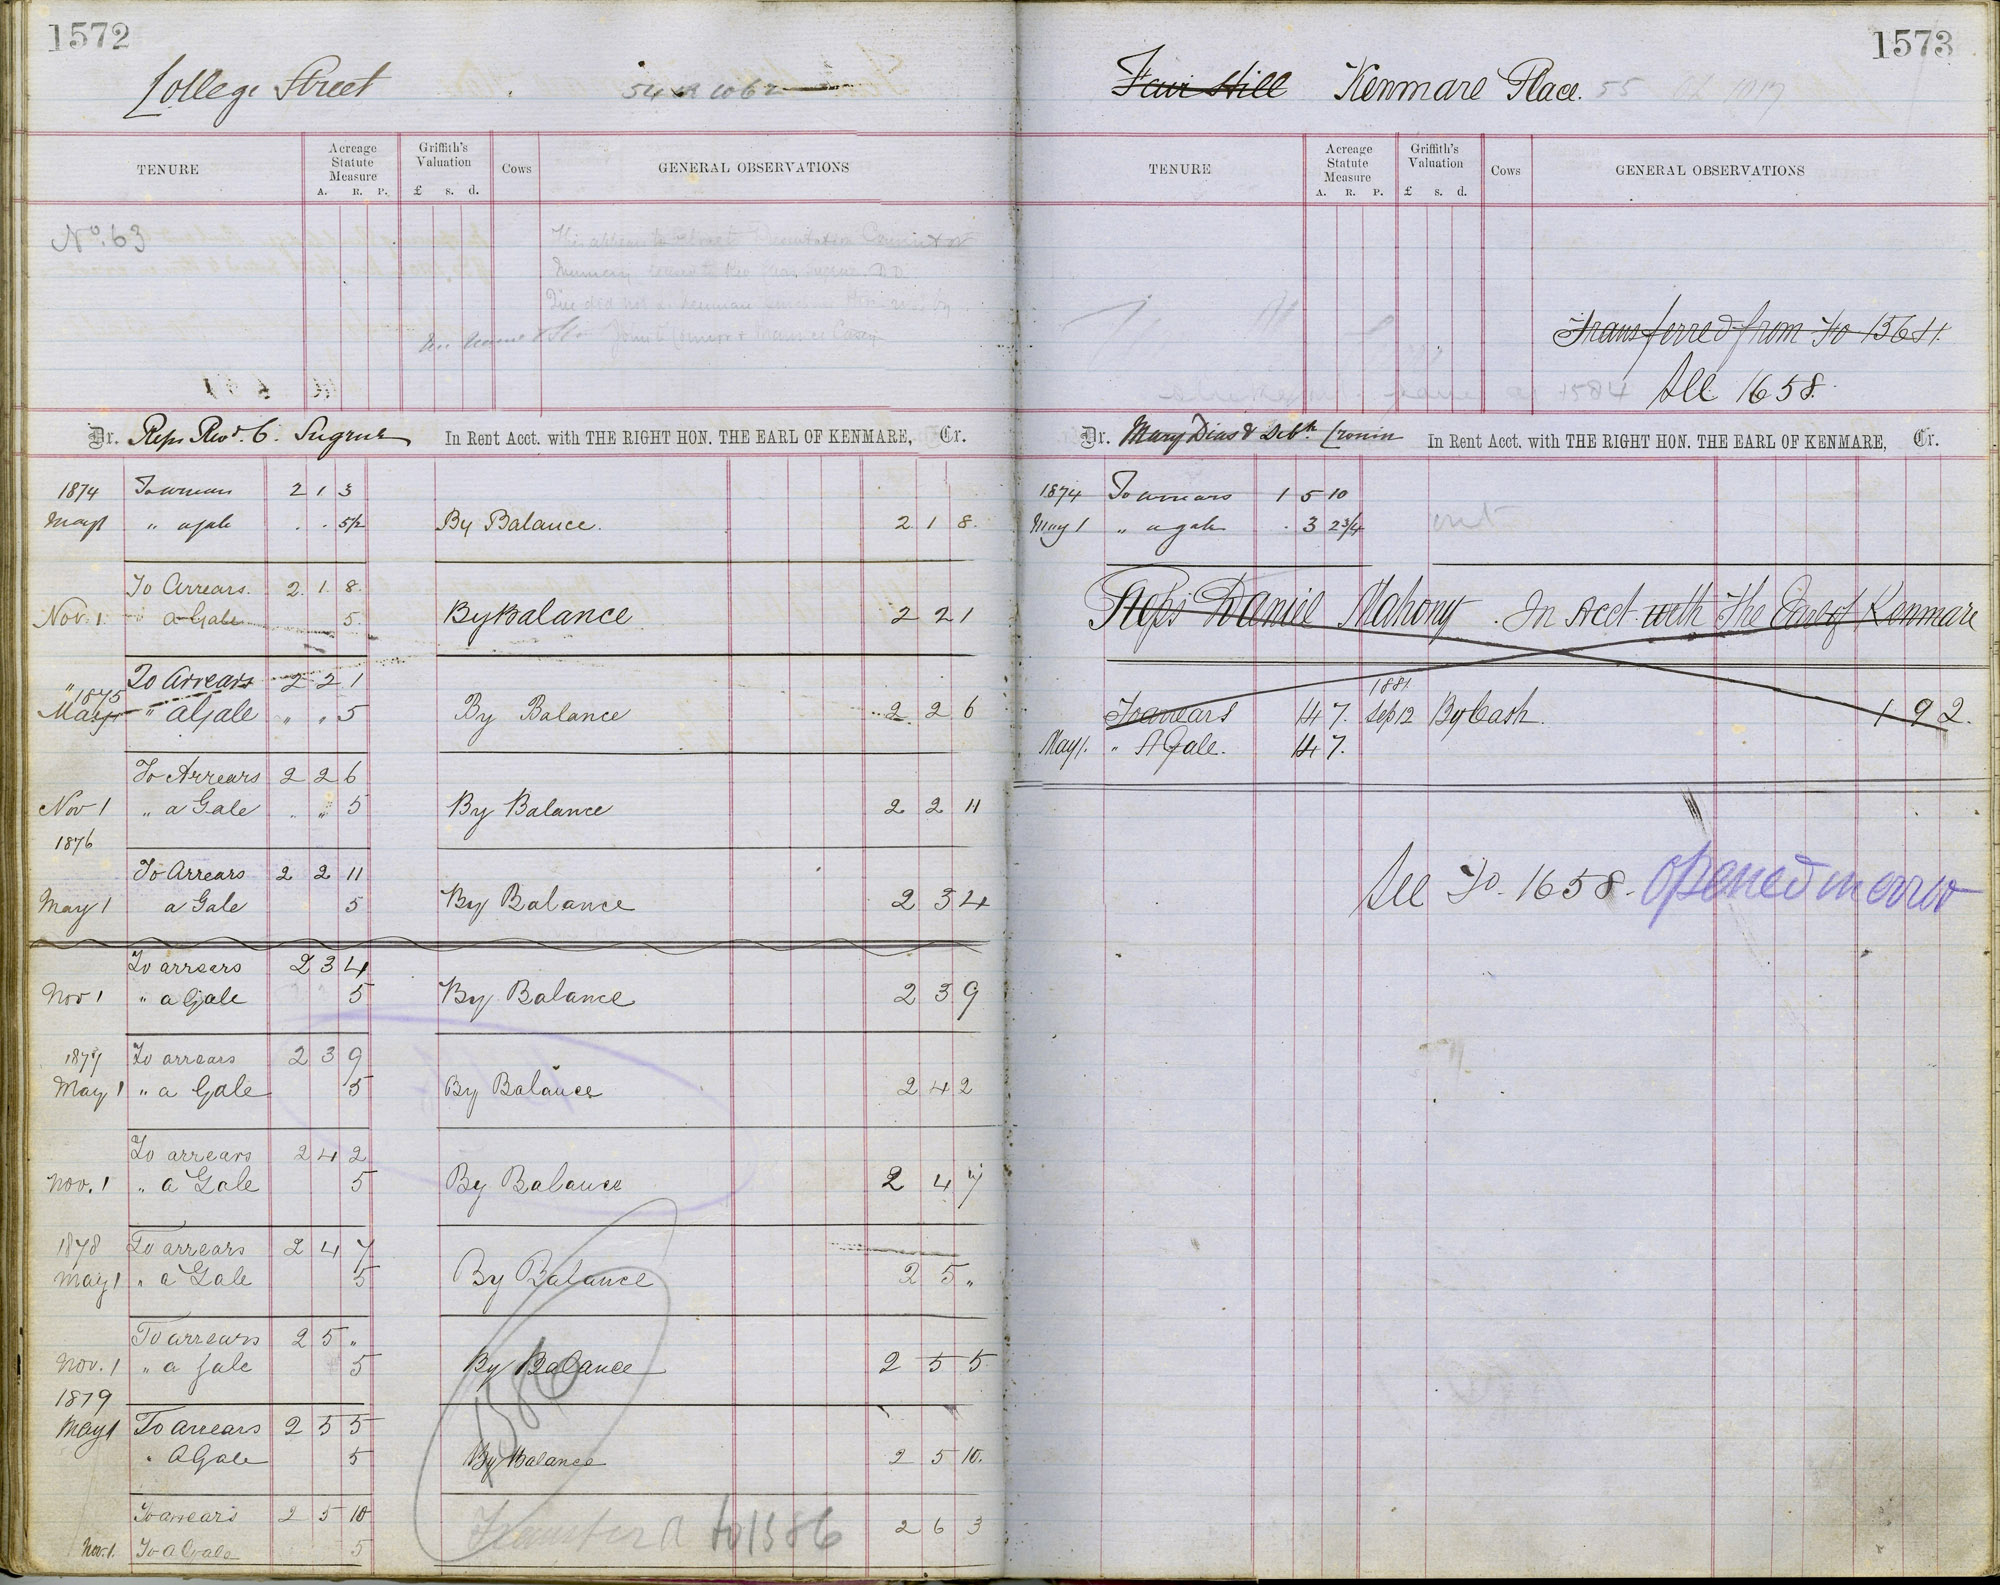 1572
College Street
TENURE
Acreage Statute Measure
A. R. P.
Griffith's Valuation
£ s. d.
Cows
GENERAL OBSERVATIONS
No. 63
Dr. Reps Revd. C. Sugrue In Rent Acct. with THE RIGHT HON. THE EARL OF KENMARE, Cr.
1874 To arrears 2 1 3
May 1 " a gale . . 5½ By Balance. 2 1 8.
To Arrears. 2. 1. 8.
Nov. 1. a Gale 5. By Balance 2 2 1
" To Arrears 2 2 1
1875
May 1 " a Gale " " 5 By Balance 2 2 6
To Arrears 2 2 6
Nov 1 " a Gale . " 5 By Balance 2 2 11
1876
To Arrears 2 2 11
May 1 a Gale 5 By Balance 2 3 4
To arrears 2 3 4
Nov 1 " a Gale 5 By Balance 2 3 9
1877 To arrears 2 3 9
May 1 " a Gale 5 By Balance 2 4 2
To arrears 2 4 2
Nov. 1 " a Gale 5 By Balance 2 4 7
1878 To arrears 2 4 7
May 1 " a Gale 5 By Balance 2 5 "
To arrears 2 5 "
Nov. 1 " a Gale 5 By Balance 2 5 5
1879
May 1 To arrears 2 5 5
" A Gale 5 By Balance 2 5 10.
1586
To arrears 2 5 10
Transferred to 1586 2 6 3
Nov. 1. To A Gale 5
1573
Fair Hill Kenmare Place.
TENURE
Acreage Statute Measure
A. R. P.
Griffith's Valuation
£ s. d.
Cows
GENERAL OBSERVATIONS
Transferred from Fo 1564.
See 1658.
Dr. Mary Dias & Debh Cronin In Rent Acct. with THE RIGHT HON. THE EARL OF KENMARE, Cr.
1874 To arrears 1 5 10
May 1 " a gale . 3 2¾
Reps Daniel Mahony. In Acct. with The Earl of Kenmare
1881
To arrears 14 7. Sep 12 By Cash. 1 9 2.
May 1. " A Gale. 14 7.
See Fo. 1658. opened in error